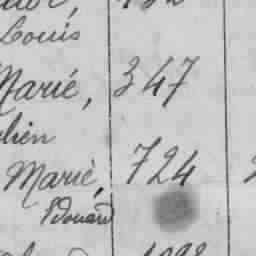 Louis
Marié, 347
lien
Marié, 724
Edouard